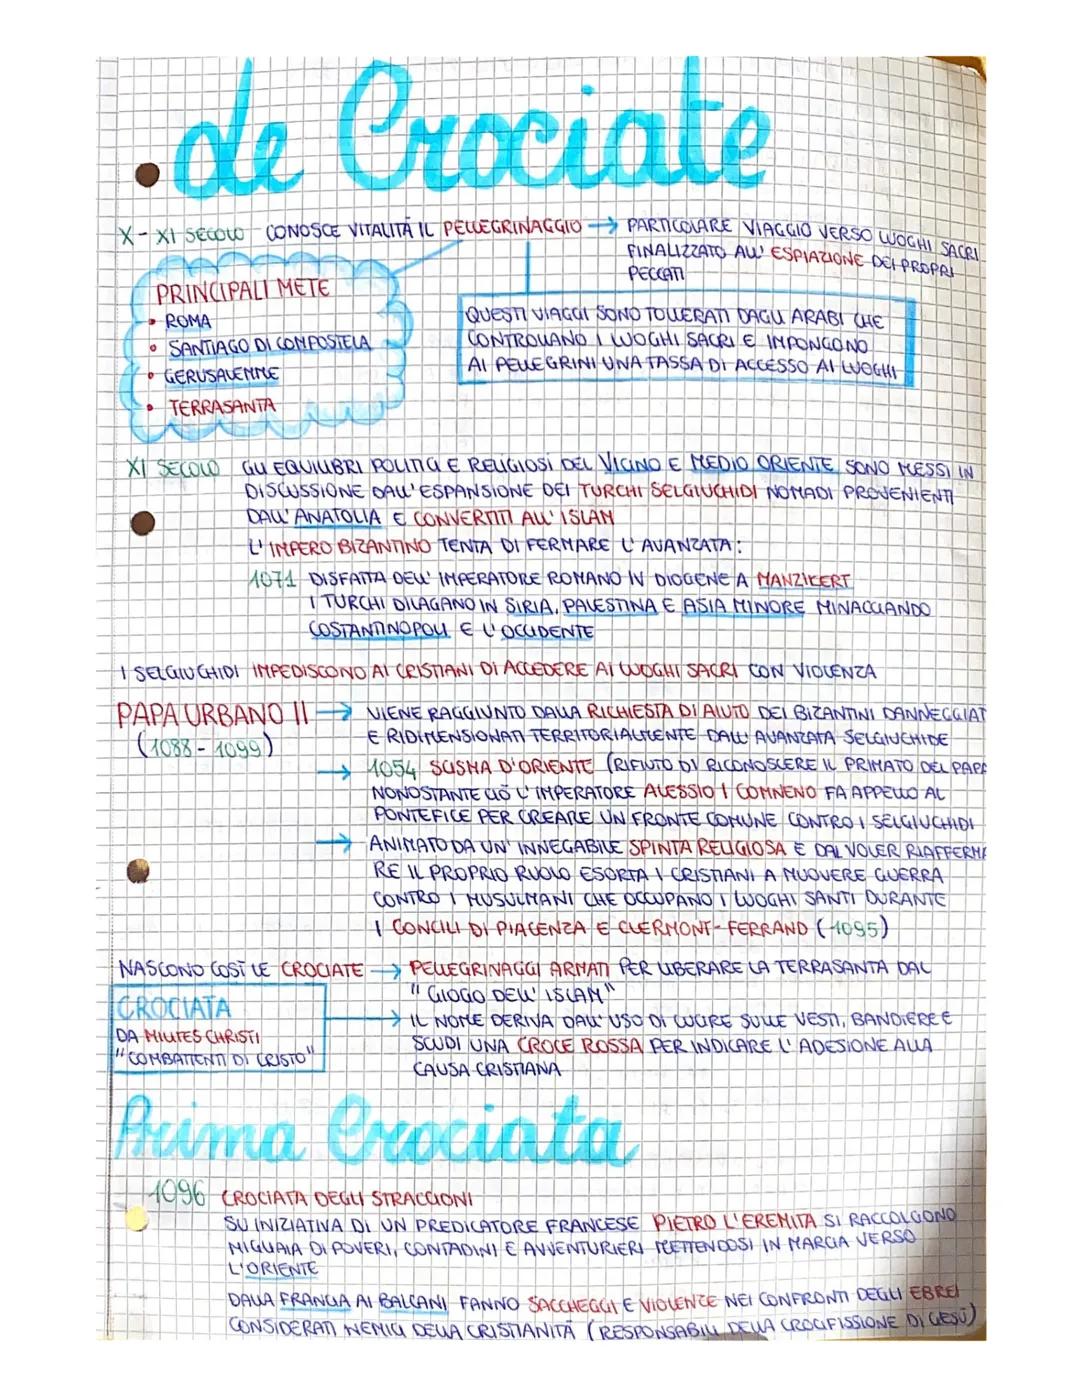 Le Crociate
X-XI SECOLO CONOSCE VITALITÀ IL PELLEGRINAGGIO → PARTICOLARE VIAGGIO VERSO LUOGHI SACRI
FINALIZZATO ALL' ESPIAZIONE DEI PROPRI
PECCATI
PRINCIPALI METE
• ROMA
• SANTIAGO DI COMPOSTELA
• GERUSALEMME
• TERRASANTA
QUESTI VIAGGI SONO TOLLERATI DAGLI ARABI CHE
CONTROLLANO I LUOGHI SACRI E IMPONGONO
AI PELLEGRINI UNA TASSA DI ACCESSO AI LUOGHI
XI SECOLO GLI EQUILIBRI POLITICI E RELIGIOSI DEL VICINO E MEDIO ORIENTE SONO MESSI IN
DISCUSSIONE DALL'ESPANSIONE DEI TURCHI SELGIUCHIDI NOMADI PROVENIENTI
DALL'ANATOLIA E CONVERTITI ALL'ISLAM
L'IMPERO BIZANTINO TENTA DI FERMARE L'AVANZATA:
1071 DISFATTA DELL'IMPERATORE ROMANO IV DIOGENE A MANZIKERT
I TURCHI DILAGANO IN SIRIA, PALESTINA E ASIA MINORE MINACCIANDO
COSTANTINOPOLI E L'OCCIDENTE
I SELGIUCHIDI IMPEDISCONO AI CRISTIANI DI ACCEDERE AI LUOGHI SACRI CON VIOLENZA
PAPA URBANO II → VIENE RAGGIUNTO DALLA RICHIESTA DI AIUTO DEI BIZANTINI DANNEGGIAT
(1088-1099) E RIDIMENSIONATI TERRITORIALMENTE DALL'AVANZATA SELGIUCHIDE
→ 1054 SCISMA D'ORIENTE (RIFIUTO DI RICONOSCERE IL PRIMATO DEL PAPA
NONOSTANTE CIÒ L'IMPERATORE ALESSIO I COMNENO FA APPELLO AL
PONTEFICE PER CREARE UN FRONTE COMUNE CONTRO I SELGIUCHIDI
→ ANIMATO DA UN'INNEGABILE SPINTA RELIGIOSA E DAL VOLER RIAFFERMA
RE IL PROPRIO RUOLO ESORTA I CRISTIANI A MUOVERE GUERRA
CONTRO I MUSULMANI CHE OCCUPANO I LUOGHI SANTI DURANTE
I CONCILI DI PIACENZA E CLERMONT-FERRAND (1095)
NASCONO COSÌ LE CROCIATE → PELLEGRINAGGI ARMATI PER LIBERARE LA TERRASANTA DAL
"GIOGO DELL'ISLAM"
CROCIATA
DA MILITES CHRISTI
"COMBATTENTI DI CRISTO"
→ IL NOME DERIVA DALL'USO DI CUCIRE SULLE VESTI, BANDIERE E
SCUDI UNA CROCE ROSSA PER INDICARE L'ADESIONE ALLA
CAUSA CRISTIANA
Prima Crociata
1096 CROCIATA DEGLI STRACCIONI
SU INIZIATIVA DI UN PREDICATORE FRANCESE PIETRO L'EREMITA SI RACCOLGONO
MIGLIAIA DI POVERI, CONTADINI E AVVENTURIERI METTENDOSI IN MARCIA VERSO
L'ORIENTE
DALLA FRANCIA AI BALCANI FANNO SACCHEGGI E VIOLENZE NEI CONFRONTI DEGLI EBREI
CONSIDERATI NEMICI DELLA CRISTIANITÀ (RESPONSABILI DELLA CROCIFISSIONE DI GESÙ)